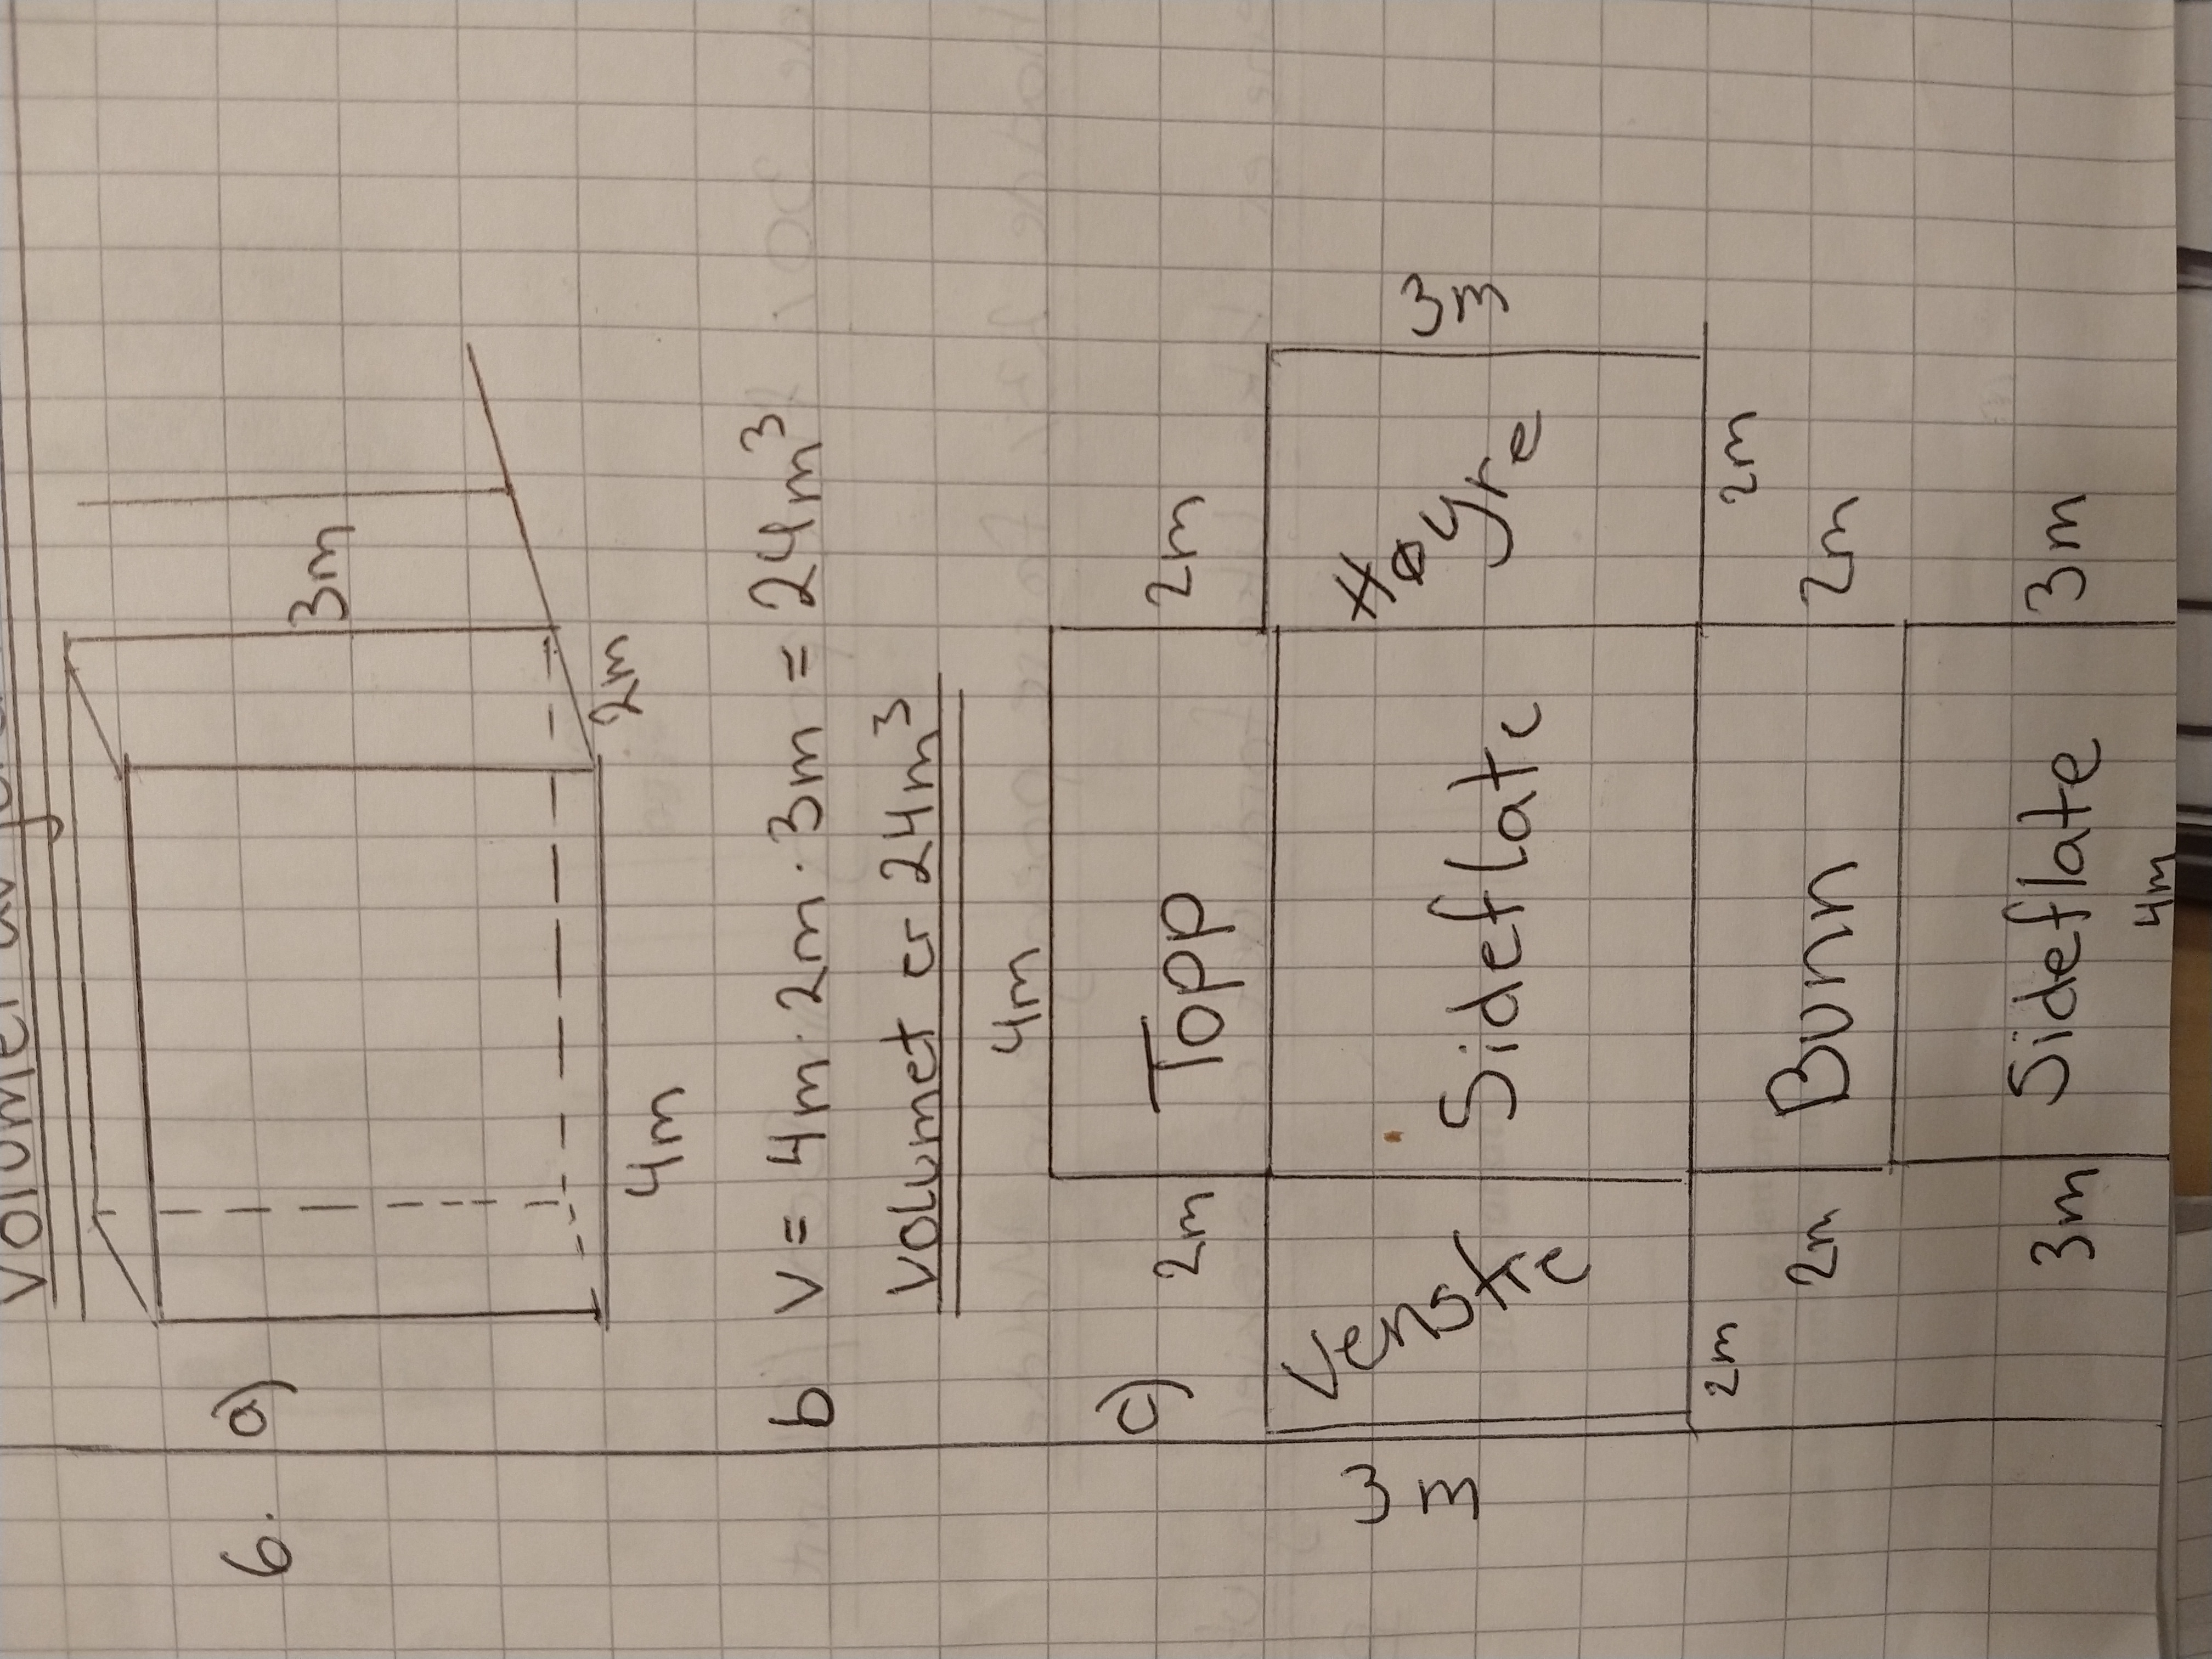 Volumet av
6. a)
3m
2m
4m
b V = 4m · 2m · 3m = 24m³
Volumet er 24m³
c) 4m
2m Topp 2m
3m Venstre Sideflate Høyre 3m
2m 2m
2m Bunn 2m
3m Sideflate 3m
4m